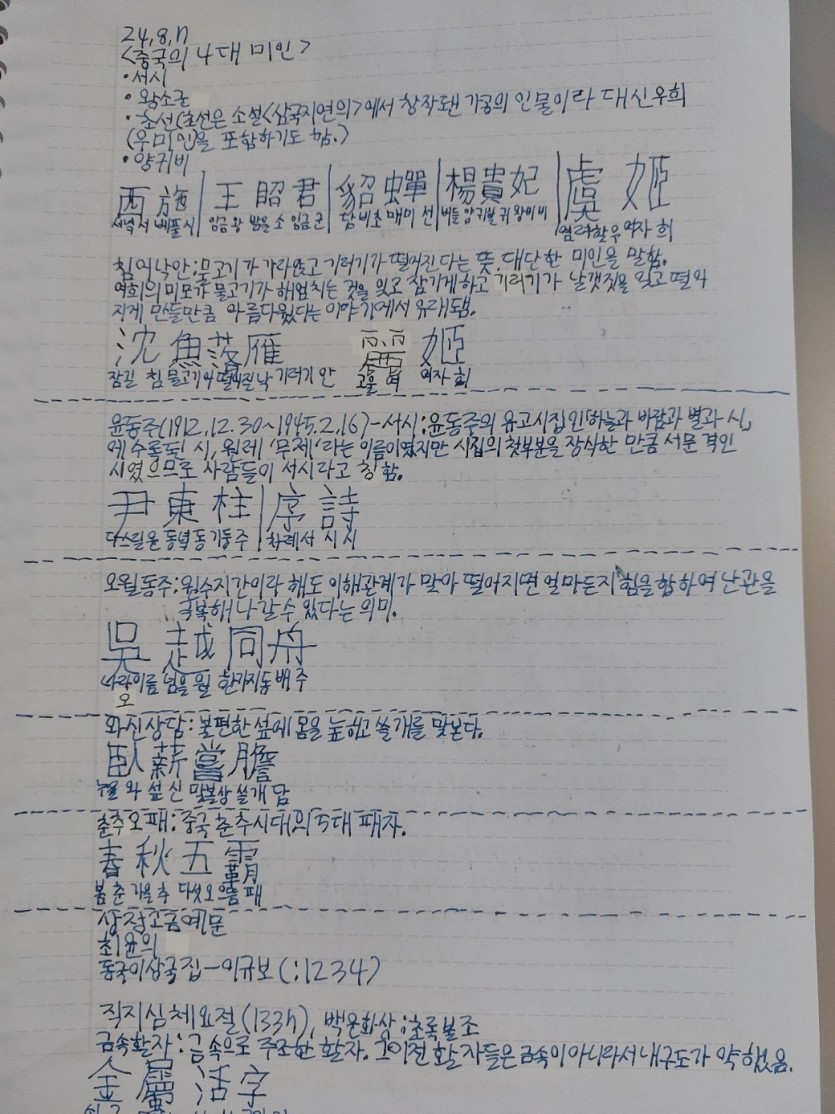 24,8,17
<중국의 4대 미인>
·서시
·왕소군
·초선(초선은 소설<삼국지연의>에서 창작됀 가공의 인물이라 대신우희
(우미인)을 포함하기도 함.)
·양귀비
西施 王昭君 貂蟬 楊貴妃 虞姬
서녘서 베풀시 임금왕 밝을소 임금군 담비초 매미선 버들양 귀할귀 왕비비 염려할우 여자희
침어낙안:물고기가 가라앉고 기러기가 떨어진다는 뜻. 대단한 미인을 말함.
여희의 미모가 물고기가 헤엄치는 것을 잊고 잠기게하고 기러기가 날갯짓을 잊고 떨어
지게 만들만큼 아름다웠다는 이야기에서 유래됨.
沈魚落雁 麗姬
잠길 침 물고기어 떨어질낙 기러기 안 고울 여 여자 희
윤동주(1912.12.30~1945.2.16)-서시:윤동주의 유고시집인 하늘과 바람과 별과 시,
에 수록된 시, 원래 '무제'라는 이름이였지만 시집의 첫부분을 장식한 만큼 서문 격인
시였으므로 사람들이 서시라고 칭함.
尹東柱 序詩
다스릴윤 동녘동 기둥주 차례서 시시
오월동주:원수지간이라 해도 이해관계가 맞아 떨어지면 얼마든지 힘을 합하여 난관을
극복해 나갈수 있다는 의미.
吳越同舟
나라이름 넘을 월 한가지동 배 주
오
와신상담:불편한 섶에 몸을 눕히고 쓸개를 맛본다.
臥薪嘗膽
누울 와 섶 신 맛볼상 쓸개 담
춘추오패:중국 춘추시대의 5대 패자.
春秋五霸
봄 춘 가을 추 다섯오 으뜸 패
상정고금예문
최윤의
동국이상국집-이규보(:1234)
직지심체요절(1377), 백운화상:초록불조
금속활자:금속으로 주조한 활자. 그이전 활자들은 금속이 아니라서 내구도가 약했음.
金屬活字